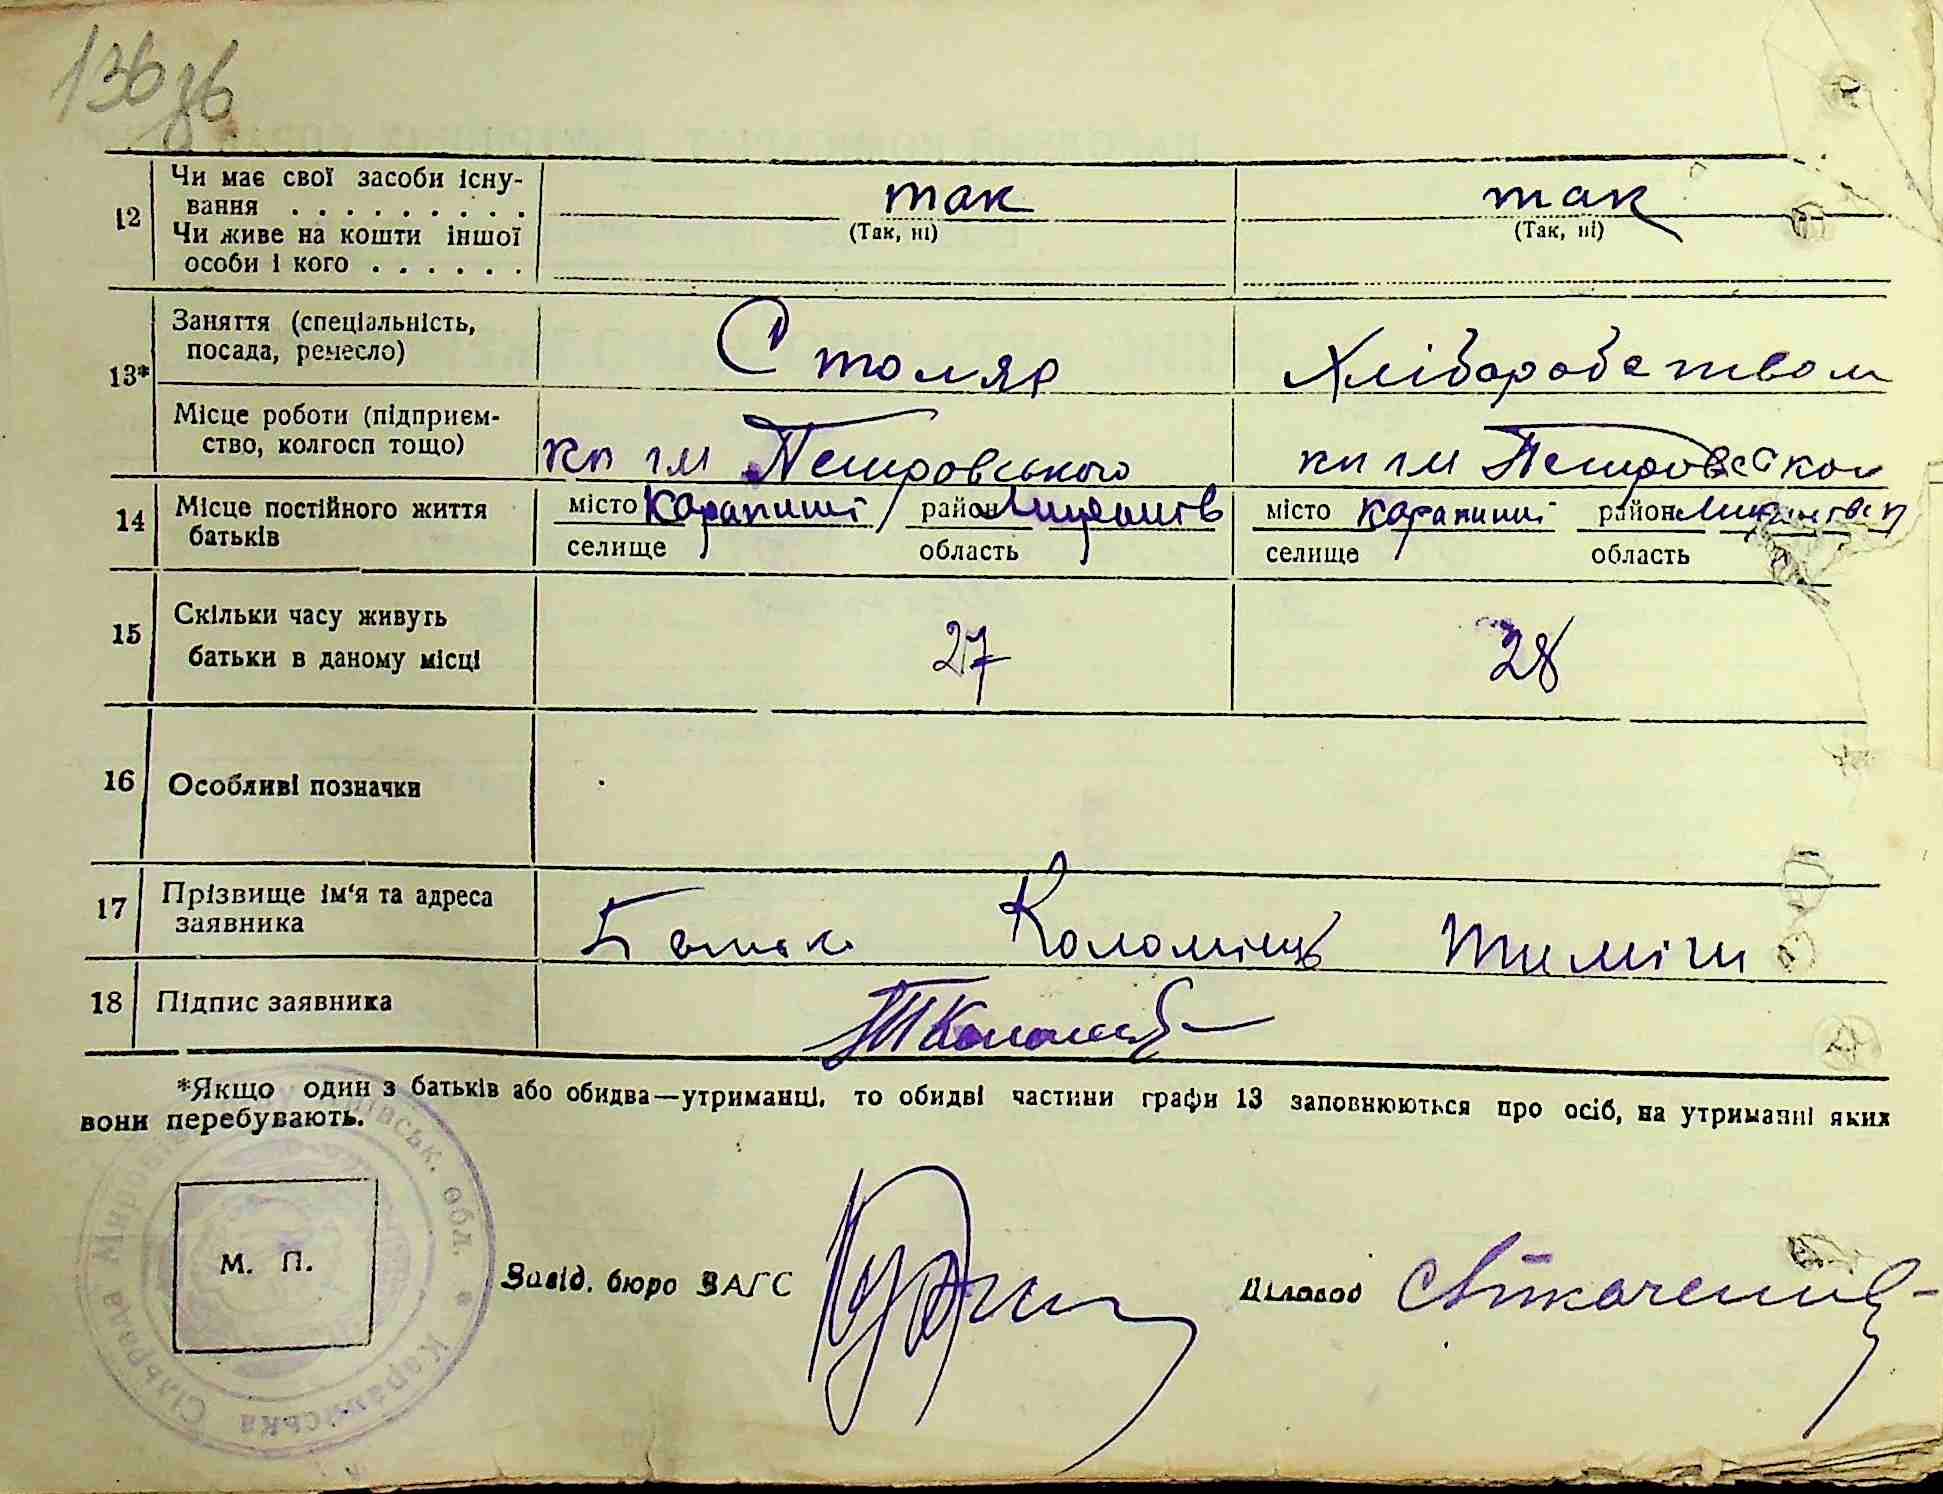 136 зв
12 Чи має свої засоби існу-
вання . . . . . . . . . так так
(Так, ні) (Так, ні)
Чи живе на кошти іншої
особи і кого . . . . . .
13* Заняття (спеціальність,
посада, ремесло) Столяр Хліборобством
Місце роботи (підприєм-
ство, колгосп тощо) кп ім Петровського кп ім
14 Місце постійного життя
батьків місто Карапиші район місто Карапиші район
селище область селище область
15 Скільки часу живуть
батьки в даному місці 27 28
16 Особливі позначки
17 Прізвище ім'я та адреса
заявника Батько Коломієць
18 Підпис заявника
*Якщо один з батьків або обидва—утриманці, то обидві частини графи 13 заповнюються про осіб, на утриманні яких
вони перебувають.
М. П. Завід. бюро ЗАГС Діловод
Караписька Сільрада обл.